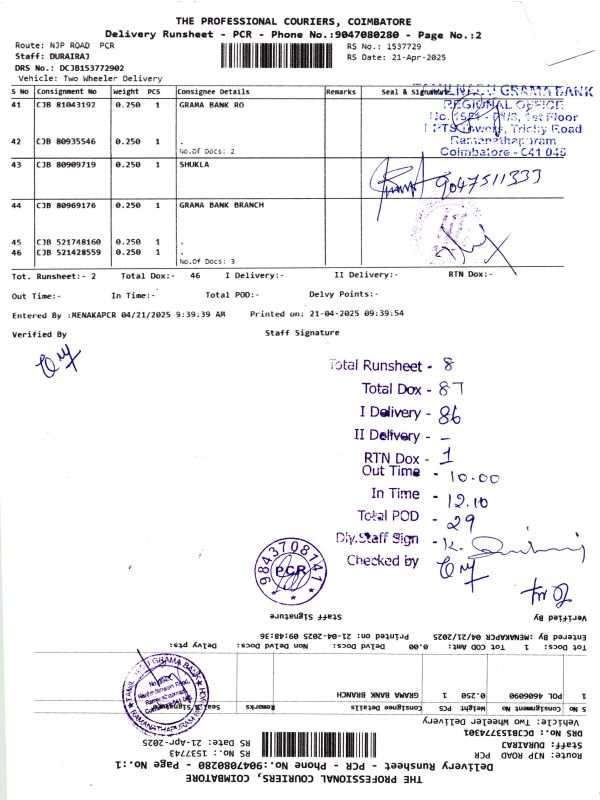 THE PROFESSIONAL COURIERS, COIMBATORE
Delivery Runsheet - PCR - Phone No.:9047080280 - Page No.:2
Route: NJP ROAD PCR
RS No.: 1537729
Staff: DURAIRAJ
RS Date: 21-Apr-2025
DRS No.: DCJB153772902
Vehicle: Two Wheeler Delivery
S No Consignment No Weight PCS Consignee Details Remarks Seal & Signature
41 CJB 81043192 0.250 1 GRAMA BANK RO
42 CJB 80935546 0.250 1 .
No.Of Docs: 2
43 CJB 80909719 0.250 1 SHUKLA
44 CJB 80969176 0.250 1 GRAMA BANK BRANCH
45 CJB 521748160 0.250 1 .
46 CJB 521428559 0.250 1 .
No.Of Docs: 3
TAMIL NADU GRAMA BANK
REGIONAL OFFICE
1st Floor
Towers, Trichy Road
Ramanathapuram
Coimbatore - 641 045
9047511333
Tot. Runsheet:- 2 Total Dox:- 46 I Delivery:- II Delivery:- RTN Dox:-
Out Time:- In Time:- Total POD:- Delvy Points:-
Entered By :MENAKAPCR 04/21/2025 9:39:39 AM Printed on: 21-04-2025 09:39:54
Verified By Staff Signature
Total Runsheet - 8
Total Dox - 87
I Delivery - 86
II Delivery - –
RTN Dox - 1
Out Time - 10.00
In Time - 12.10
Total POD - 29
Dly.Staff Sign -
Checked by
9843708141
PCR
THE PROFESSIONAL COURIERS, COIMBATORE
Delivery Runsheet - PCR - Phone No.:9047080280 - Page No.:1
Route: NJP ROAD PCR
RS No.: 1537743
Staff: DURAIRAJ
RS Date: 21-Apr-2025
DRS No.: DCJB153774301
Vehicle: Two Wheeler Delivery
S No Consignment No Weight PCS Consignee Details Remarks Seal & Signature
1 POL 4606090 0.250 1 GRAMA BANK BRANCH
TAMIL NADU GRAMA BANK
RAMANATHAPURAM
Tot Docs: 1 Tot COD Amt: 0.00 Delvd Docs: Non Delvd Docs: Delvy pts:
Entered By :MENAKAPCR 04/21/2025 Printed on: 21-04-2025 09:48:36
Verified By Staff Signature